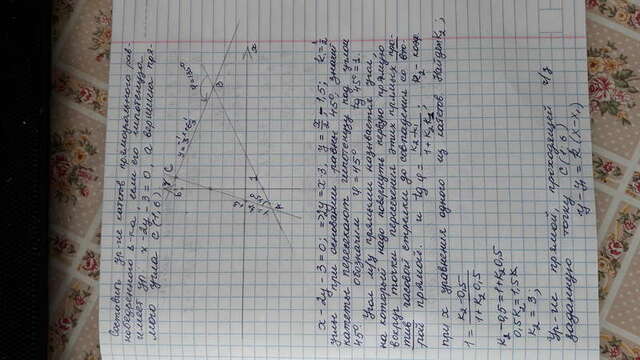 Составить ур-ие катетов прямоугольного рав-
нобедренного Δ-ка, если его гипотенуза
имеет ур. x-2y-3=0, а вершина пря-
мого угла C(1,6)
x-2y-3=0; =>2y=x-3 y=x/2-1,5; k=1/2
углы при основании равны 45°, значит
катеты пересекают гипотенузу под углом
45° обозначим φ=45° tg 45°=1
Угол м/у прямыми называется угол,
на который надо повернуть первую прямую
вокруг точки пересечения этих прямых про-
тив часовой стрелки до совпадения со вто-
рой прямой. и tg φ=(k2-k1)/(1+k1k2); k2- коэф
при x уравнения одного из катетов. Найдем k2;
1=(k2-0,5)/(1+k2 0,5)
k2-0,5=1+k2 0,5
0,5k2=1,5
k2=3;
Ур-ие прямой, проходящей
заданную точку C(1,6)
y-y1=k(x-x1)